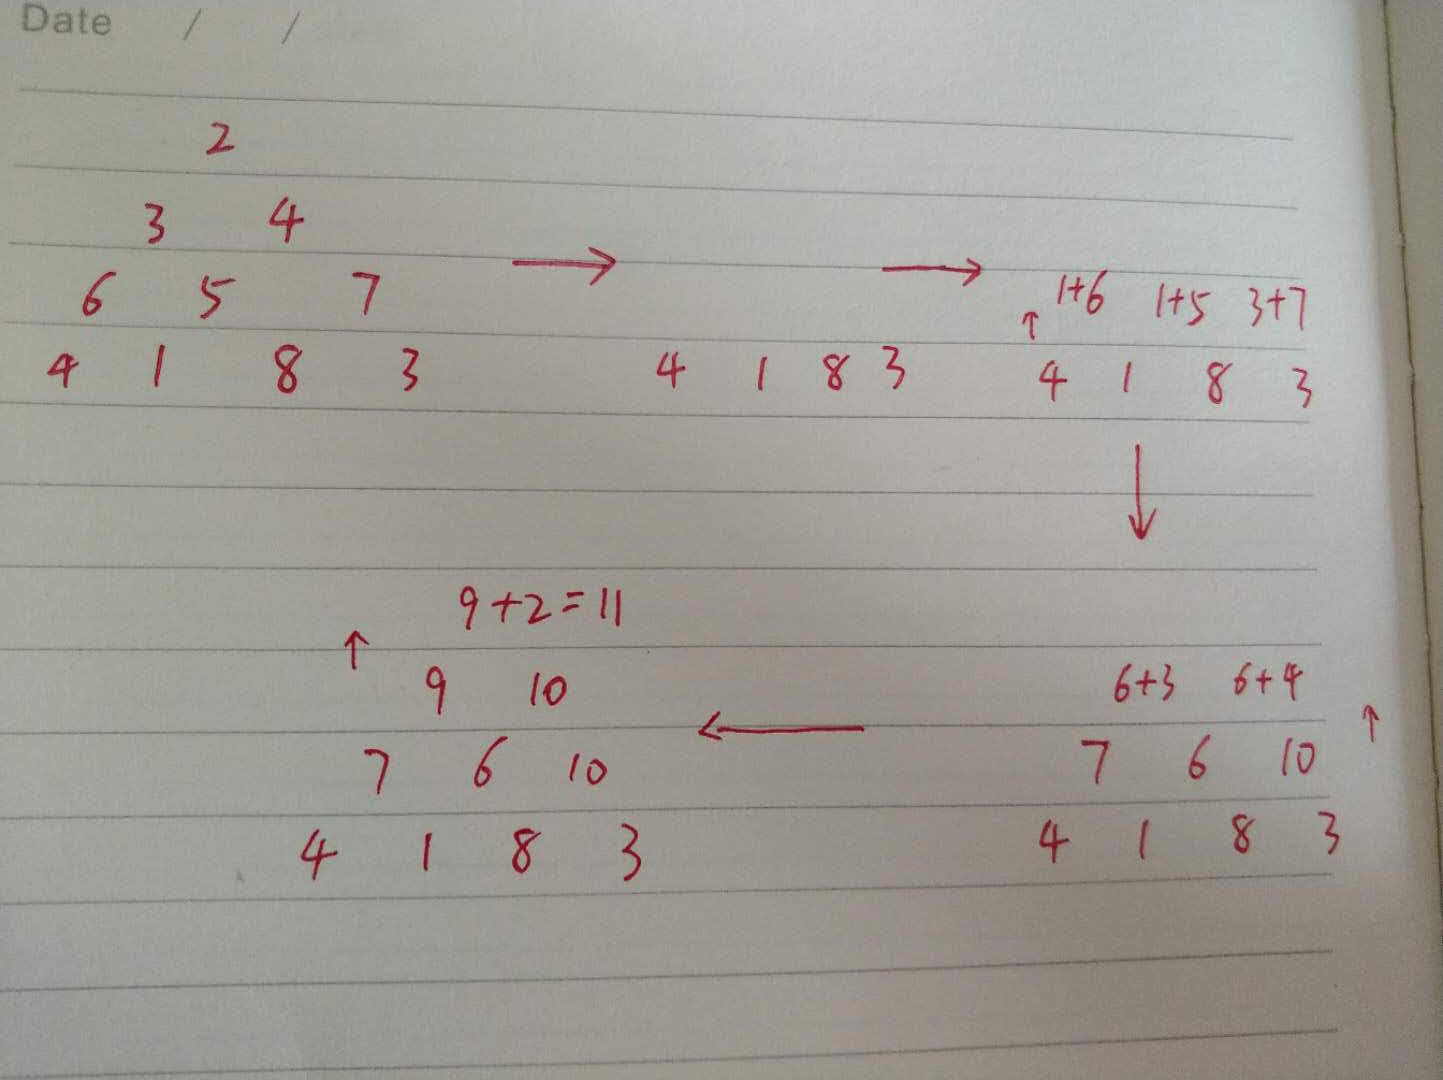 Date / /
2
3 4
6 5 7
4 1 8 3
→
4 1 8 3
→
1+6 1+5 3+7
↑
4 1 8 3
↓
6+3 6+4
↑
7 6 10
4 1 8 3
←
9+2=11
↑
9 10
7 6 10
4 1 8 3